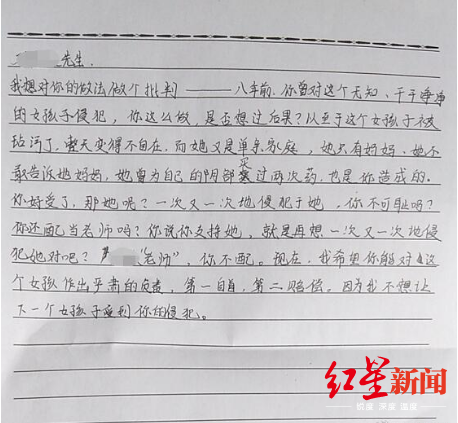 先生.
我想对你的做法做个批判——八年前.你曾对这个无知、干干净净
的女孩子侵犯,你这么做,是否想过后果?以至于这个女孩子被
玷污了,整天变得不自在.而她又是单亲家庭,她只有妈妈、她不
敢告诉她妈妈,她曾为自己的阴部买过两次药,也是你造成的.
你好受了,那她呢?一次又一次地侵犯于她,你不可耻吗?
你还配当老师吗?你说你支持她,就是再想一次又一次地侵
犯她对吧?“老师”,你不配。现在,我希望你能对这
个女孩作出严肃的负责,第一自首,第二赔偿。因为我不想让
下一个女孩子受到你的侵犯。
红星新闻
锐度 深度 温度